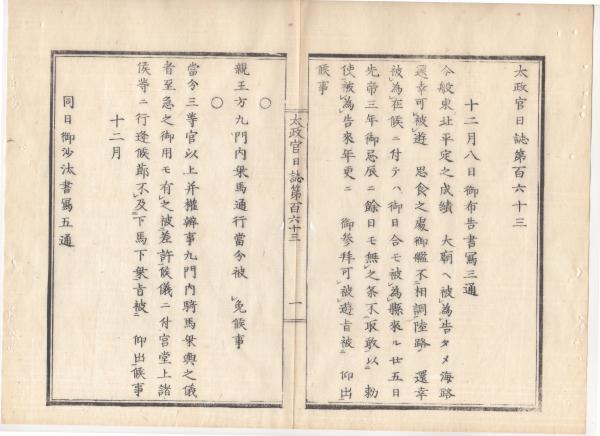 太政官日誌第百六十三
十二月八日御布告書寫三通
今般東北平定之成績 大廟ヘ被爲告タメ海路
還幸可被遊 思食之處御艦不相調陸路 還幸
被爲在候ニ付テハ御日合モ被爲縣來ル廿五日
先帝三年御忌辰ニ餘日モ無之条不取敢以 勅
使被爲告來年更ニ 御參拜可被遊旨被 仰出
候事
太政官日誌第百六十三
一
○
親王方九門内乗馬通行當分被 免候事
○
當今三等官以上并權辨事九門内騎馬乗輿之儀
者至急之御用モ有之被差許候儀ニ付宮堂上諸
侯等ニ行逢候節不及下馬下乗旨被 仰出候事
十二月
同日御沙汰書寫五通